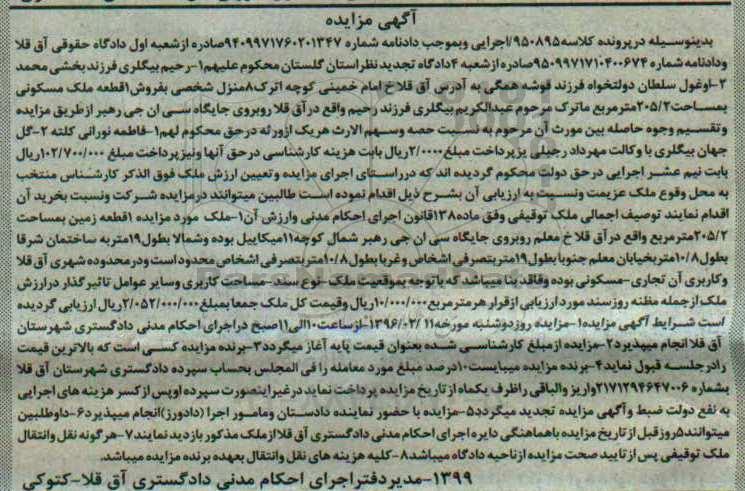 آگهی مزایده
بدینوسیله در پرونده کلاسه ۹۵۰۸۹۵/اجرایی وبموجب دادنامه شماره ۹۴۰۹۹۷۱۷۶۰۲۰۱۳۴۷صادره از شعبه اول دادگاه حقوقی آق قلا
ودادنامه شماره ۹۵۰۹۹۷۱۷۱۰۴۰۰۶۷۴صادره از شعبه ۴دادگاه تجدید نظر استان گلستان محکوم علیهم۱-رحیم بیگلری فرزند بخشی محمد
۲-اوغول سلطان دولتخواه فرزند قوشه همگی به آدرس آق قلا خ امام خمینی کوچه اترک۸منزل شخصی بفروش۱قطعه ملک مسکونی
بمساحت۲۰۵/۲مترمربع ماترک مرحوم عبدالکریم بیگلری فرزند رحیم واقع درآق قلا روبروی جایگاه سی ان جی رهبر ازطریق مزایده
وتقسیم وجوه حاصله بین مورث آن مرحوم به نسبت حصه وسهم الارث هریک ازورثه درحق محکوم لهم۱-فاطمه نورانی کلته ۲-گل
جهان بیگلری با وکالت مهرداد رجبیلی بزپرداخت مبلغ ۲/۰۰۰۰ریال بابت هزینه کارشناسی درحق آنها ونیزپرداخت مبلغ ۱۰۲/۷۰۰/۰۰۰ریال
بابت نیم عشر اجرایی درحق دولت محکوم گردیده اند که درراستای اجرای مزایده وتعیین ارزش ملک فوق الذکر کارشناس منتخب
به محل وقوع ملک عزیمت ونسبت به ارزیابی آن بشرح ذیل اقدام نموده است طالبین میتوانند درمزایده شرکت ونسبت بخرید آن
اقدام نمایند توصیف اجمالی ملک توقیفی وفق ماده۱۳۸قانون اجرای احکام مدنی وارزش آن۱-ملک مورد مزایده ۱قطعه زمین بمساحت
۲۰۵/۲مترمربع واقع درآق قلا خ معلم روبروی جایگاه سی ان جی رهبر شمال کوچه۱۱میکاییل بوده وشمالا بطول۱۹متربه ساختمان شرقا
بطول۱۰/۸متربخیابان معلم جنوبا بطول۱۹متربتصرفی اشخاص وغربا بطول۱۰/۸متربتصرفی اشخاص محدوداست ودرمحدوده شهری آق قلا
وکاربری آن تجاری-مسکونی بوده وفاقد بنا میباشد که باتوجه بموقعیت ملک-نوع سند-مساحت کاربری وسایر عوامل تاثیرگذار درارزش
ملک ازجمله مظنه روزسند مورد ارزیابی ازقرار هرمترمربع ۱۰/۰۰۰/۰۰۰ریال وقیمت کل ملک جمعا بمبلغ ۲/۰۵۲/۰۰۰/۰۰۰ریال ارزیابی گردیده
است شرایط آگهی مزایده۱-مزایده روزدوشنبه مورخه۱۳۹۶/۰۲/۱۱-ازساعت۱۰الی۱۱صبح دراجرای احکام مدنی دادگستری شهرستان
آق قلاانجام میپذیرد۲-مزایده ازمبلغ کارشناسی شده بعنوان قیمت پایه آغاز میگردد۳-برنده مزایده کسی است که بالاترین قیمت
رادرجلسه قبول نماید۴-برنده مزایده میبایست۱۰درصد مبلغ مورد معامله را فی المجلس بحساب سپرده دادگستری شهرستان آق قلا
بشماره ۲۱۷۱۲۹۴۶۴۷۰۰۶واریز والباقی راظرف یکماه ازتاریخ مزایده پرداخت نماید درغیراینصورت سپرده اوپس ازکسر هزینه های اجرایی
به نفع دولت ضبط وآگهی مزایده تجدید میگردد۵-مزایده با حضور نماینده دادستان ومامور اجرا (دادورز)انجام میپذیرد۶-داوطلبین
میتوانند۵روزقبل ازتاریخ مزایده باهماهنگی دایره اجرای احکام مدنی دادگستری آق قلا ازملک مذکور بازدید نمایند۷-هرگونه نقل وانتقال
ملک توقیفی پس ازتایید صحت مزایده ازناحیه دادگاه میباشد۸-کلیه هزینه های نقل وانتقال بعهده برنده مزایده میباشد.
۱۳۹۹-مدیردفتراجرای احکام مدنی دادگستری آق قلا-کتوکی